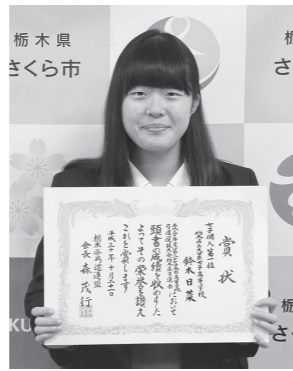 栃木県
さくら市
栃
さ
賞状
女子個人第一位
鈴木日菜
において
頭書の成績を収めました
よってその栄誉を讃え
これを賞します
平成三十年十月二十一日
栃木県弓道連盟
会長 森茂行
KU
さ